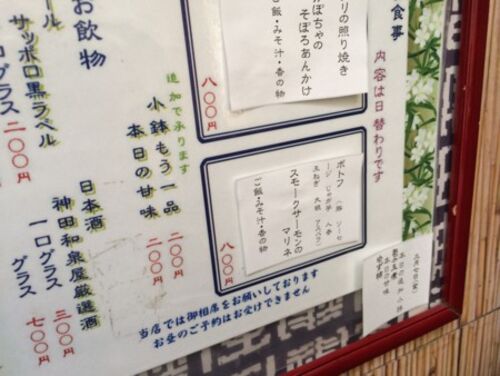 食事
内容は日替わりです
リの照り焼き
かぼちゃの
そぼろあんかけ
ご飯・みそ汁・香の物
八〇〇円
ポトフ
スモークサーモンの
マリネ
ご飯・みそ汁・香の物
八〇〇円
追加で承ります
小鉢もう一品
二〇〇円
本日の甘味
二〇〇円
お飲物
ール
サッポロ黒ラベル
グラス 二〇〇円
日本酒
神田和泉屋厳選酒
一口グラス 三〇〇円
グラス 七〇〇円
当店では御相席をお願いしております
お昼のご予約はお受けできません
本日の追加小鉢
本日の甘味